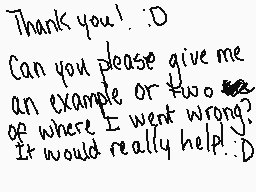 Thank you! :D
Can you please give me
an example or two
of where I went wrong?
It would really help! :D